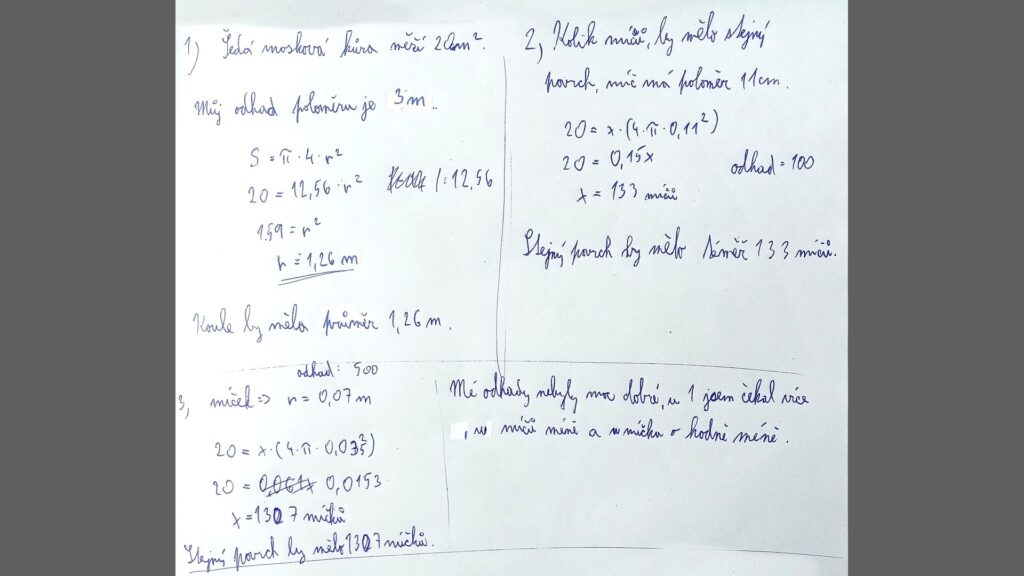 1) Šedá mosková kůra měří 20m².
Můj odhad poloměru je 3m.
S = π·4·r²
20 = 12,56·r² /:12,56
1,59 = r²
r = 1,26 m
Koule by měla průměr 1,26 m.
2, Kolik míčů, by mělo stejný
povrch, míč má poloměr 11cm.
20 = x·(4·π·0,11²)
20 = 0,15x
odhad = 100
x = 133 míčů
Stejný povrch by mělo téměř 133 míčů.
odhad: 500
3, míček => r = 0,07 m
20 = x·(4·π·0,035²)
20 = 0,0153
x = 1307 míčků
Stejný povrch by mělo 1307 míčků.
Mé odhady nebyly moc dobré, u 1 jsem čekal více
, u míčů méně a u míčku o hodně méně.